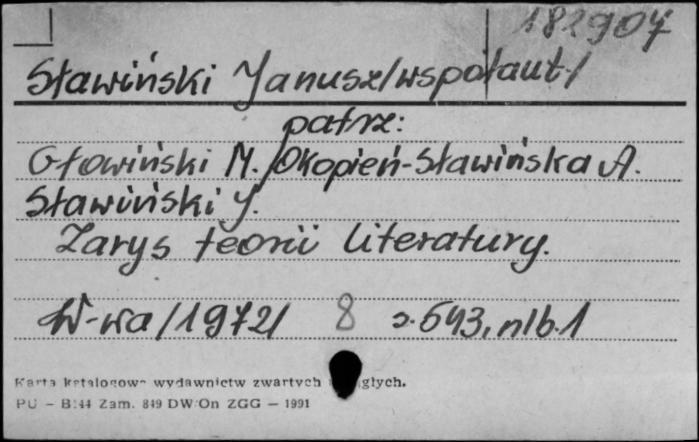 182907
Sławiński Janusz/współaut./
patrz:
Głowiński M. Okopień-Sławińska A.
Sławiński J.
Zarys teorii literatury.
W-wa/1972/ 8 s.543, nlb.1
Karta katalogowa wydawnictw zwartych głych.
PU - B/44 Zam. 849 DW/On ZGG — 1991